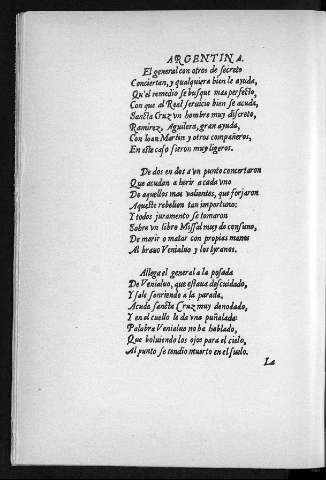 ARGENTINA.
El general con otros de secreto
Conciertan, y qualquiera bien le ayuda,
Qu'el remedio se busque mas perfecto,
Con que al Real seruicio bien se acuda,
Sancta Cruz vn hombre muy discreto,
Ramirez, Aguilera, gran ayuda,
Con Ioan Martin y otros compañeros,
En este caso fueron muy ligeros.
De dos en dos a vn punto concertaron
Que acudan a herir a cada vno
De aquellos mas valientes, que forjaron
Aqueste rebelion tan importuno;
Y todos juramento se tomaron
Sobre vn libro Missal muy de consuno,
De morir o matar con propias manos
Al brauo Venialuo y los tyranos.
Allega el general a la posada
De Venialuo, que estaua descuidado,
Y sale sonriendo a la parada,
Acude sancta Cruz muy denodado,
Y en el cuello le da vna puñalada:
Palabra Venialuo no ha hablado,
Que boluiendo los ojos para el cielo,
Al punto se tendio muerto en el suelo.
La